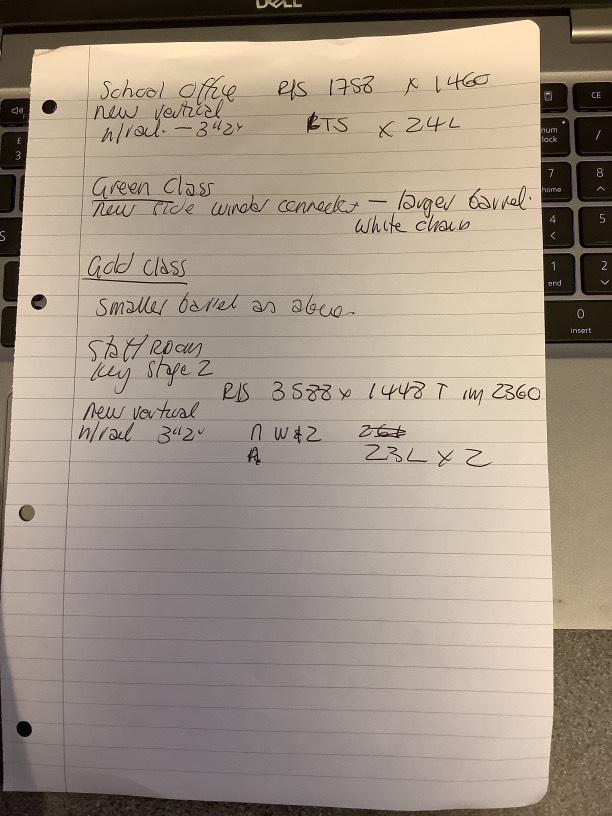 DELL
School Office R/S 1758 x 1460
new vertical
h/rail. - 3"2" LTS x 24L
Green Class
new side winder connecter - larger barrel.
white chain
Gold Class
smaller barrel as above.
Staff Room
Key Stage 2
R/S 3588 x 1448 T 1m 2360
new vertical
h/rail 3"2" n W & Z
23L x 2
£
3
num
lock
CE
/
7
home
8
4
5
1
end
2
0
insert
S